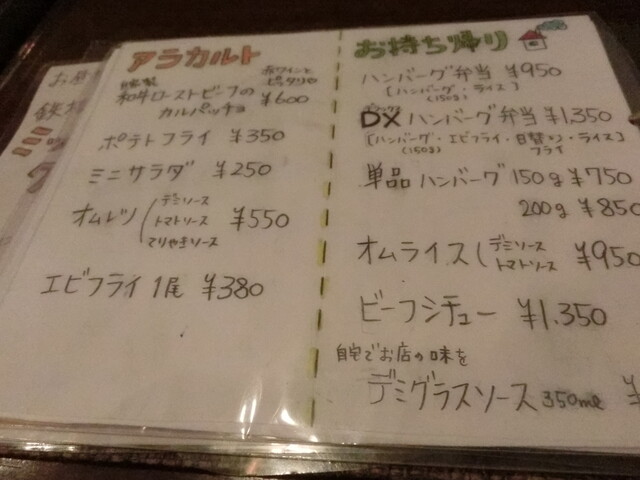 アラカルト
自家製 赤ワインと
和牛ローストビーフの ピッタリ♡
カルパッチョ ¥600
ポテトフライ ¥350
ミニサラダ ¥250
デミソース
オムレツ トマトソース ¥550
てりやきソース
エビフライ 1尾 ¥380
お持ち帰り
ハンバーグ弁当 ¥950
[ハンバーグ・ライス]
(150g)
デラックス
DX ハンバーグ弁当 ¥1.350
[ハンバーグ・エビフライ・日替り・ライス]
(150g) フライ
単品 ハンバーグ 150g ¥750
200g ¥850
オムライス デミソース ¥950
トマトソース
ビーフシチュー ¥1.350
自宅でお店の味を
デミグラスソース 350ml ¥